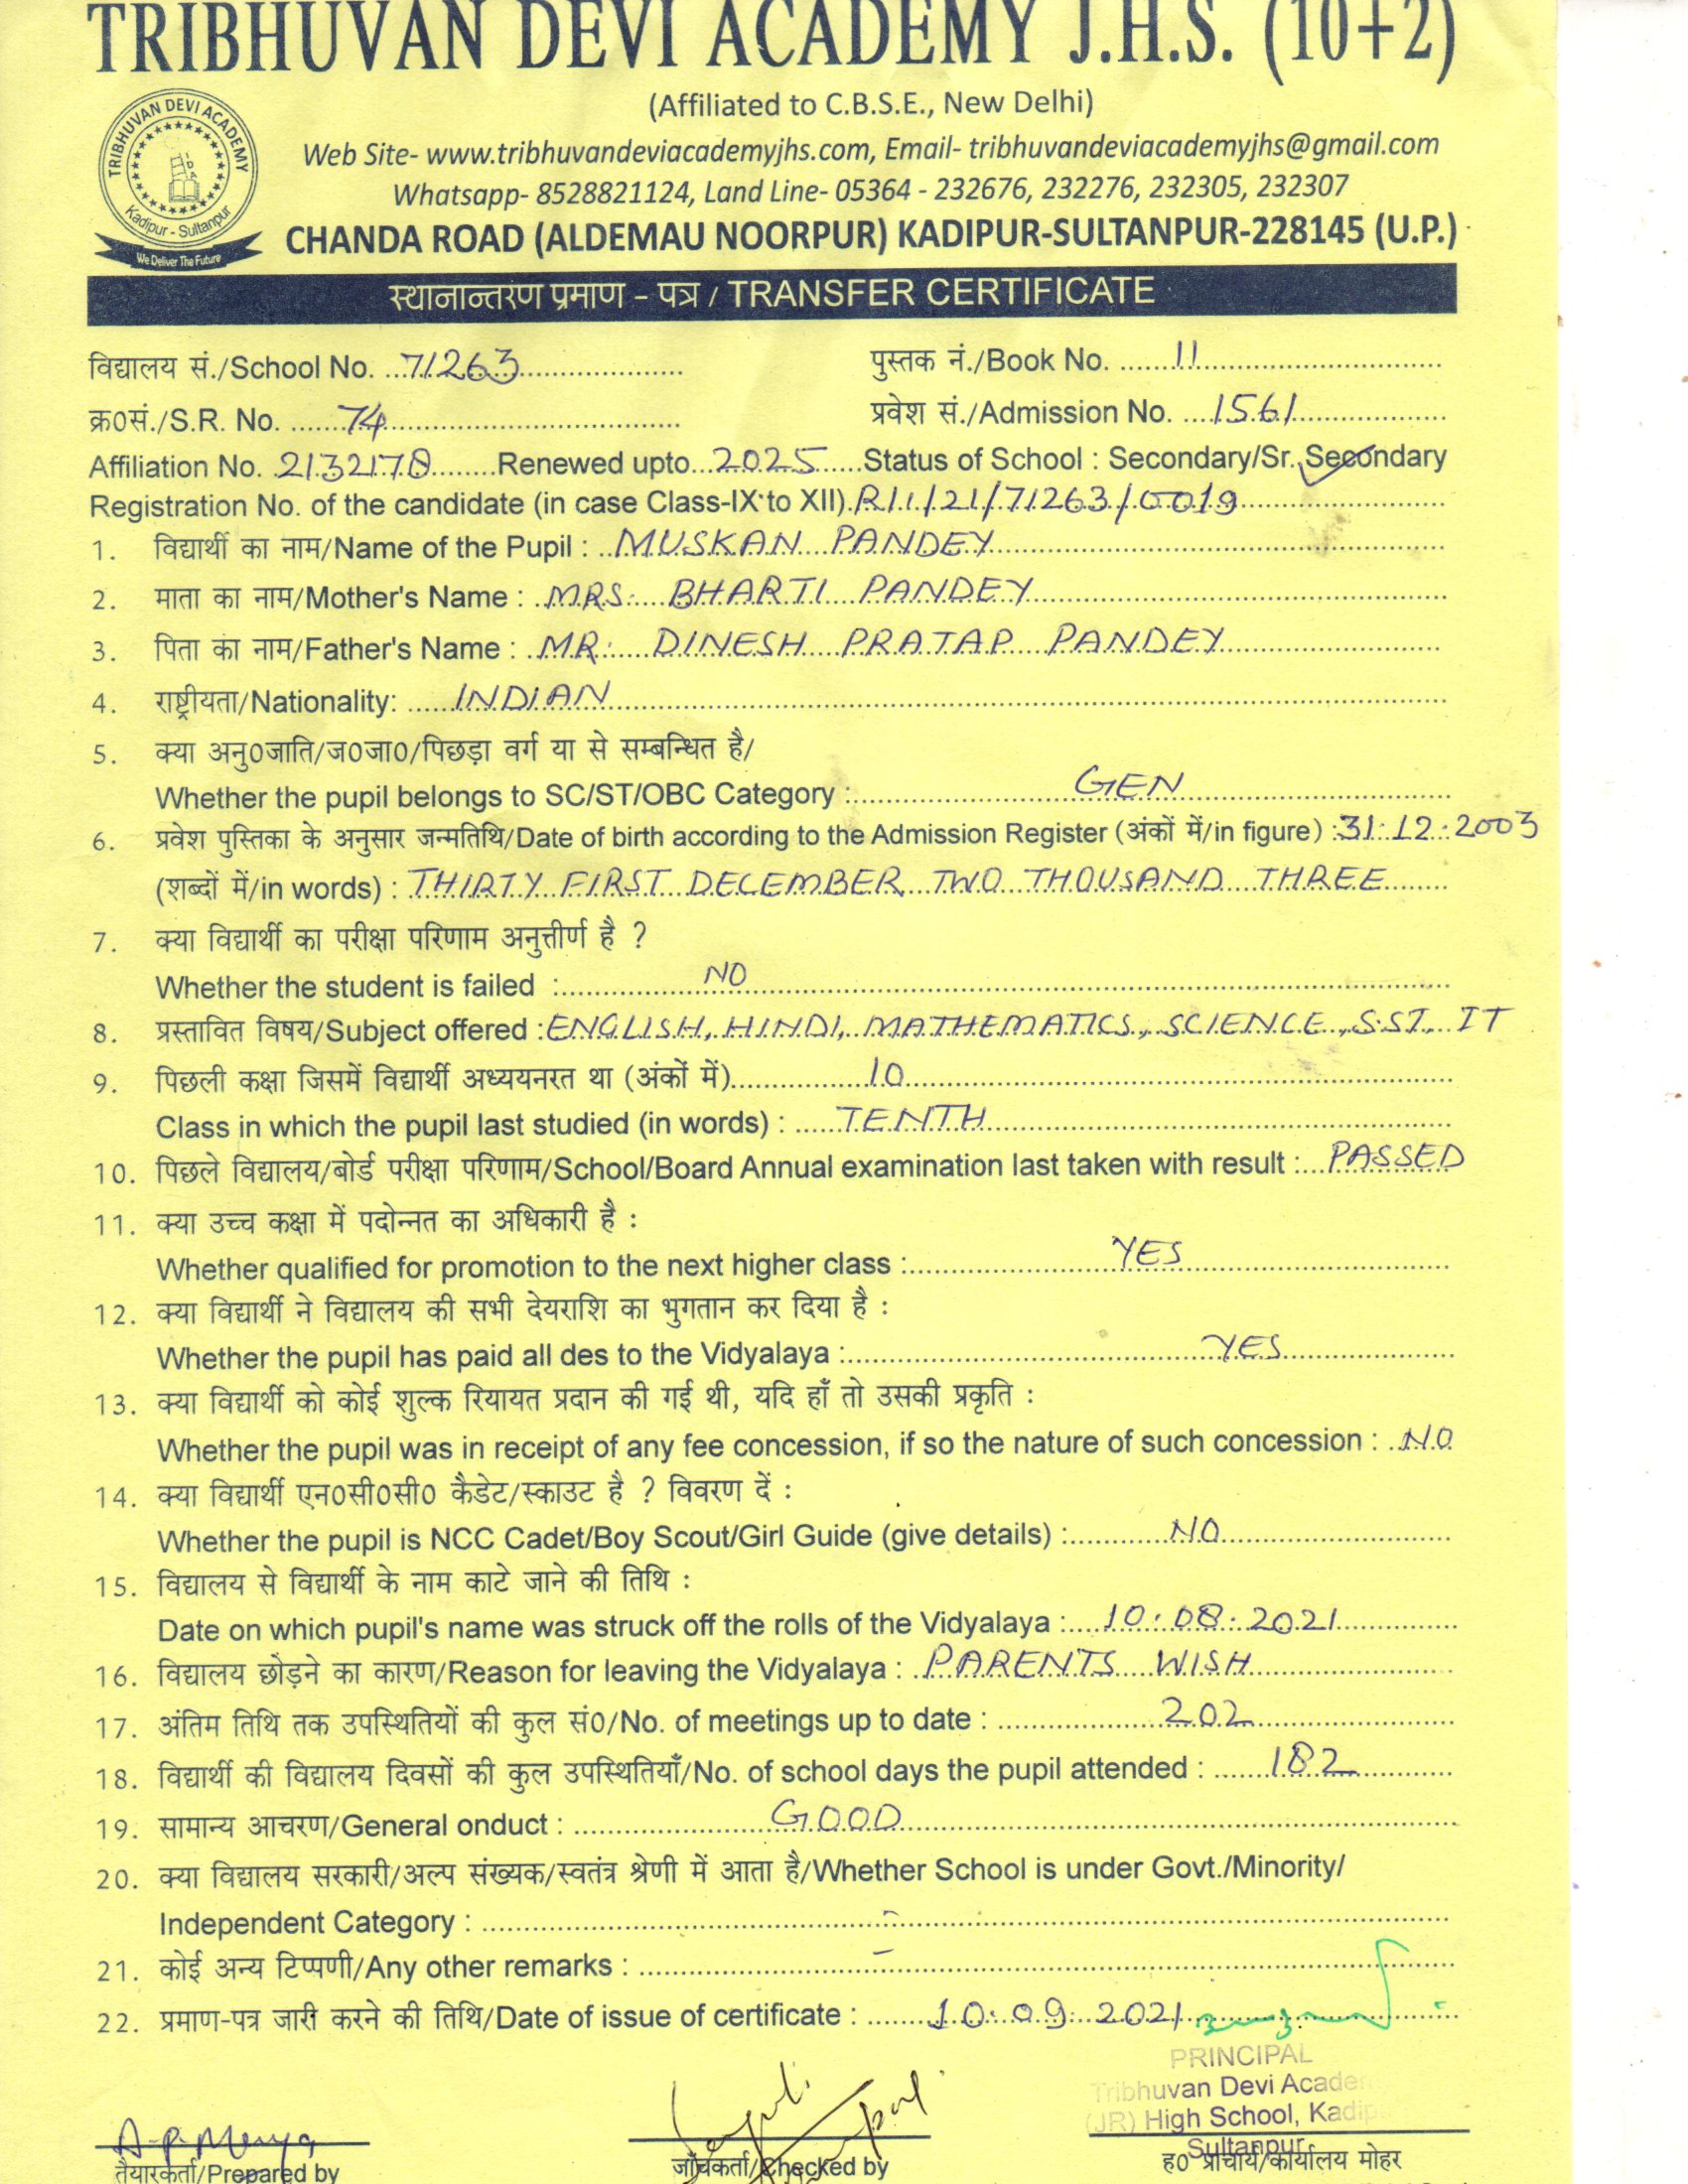 TRIBHUVAN DEVI ACADEMY J.H.S. (10+2)
(Affiliated to C.B.S.E., New Delhi)
TRIBHUVAN DEVI ACADEMY
Kadipur - Sultanpur
We Deliver The Future
Web Site- www.tribhuvandeviacademyjhs.com, Email- tribhuvandeviacademyjhs@gmail.com
Whatsapp- 8528821124, Land Line- 05364 - 232676, 232276, 232305, 232307
CHANDA ROAD (ALDEMAU NOORPUR) KADIPUR-SULTANPUR-228145 (U.P.)
स्थानान्तरण प्रमाण - पत्र / TRANSFER CERTIFICATE
विद्यालय सं./School No. 71263 पुस्तक नं./Book No. 11
क्र0सं./S.R. No. 74 प्रवेश सं./Admission No. 1561
Affiliation No. 2132178 Renewed upto 2025 Status of School : Secondary/Sr. Secondary
Registration No. of the candidate (in case Class-IX to XII) R11/21/71263/0019
1. विद्यार्थी का नाम/Name of the Pupil : MUSKAN PANDEY
2. माता का नाम/Mother's Name : MRS. BHARTI PANDEY
3. पिता का नाम/Father's Name : MR. DINESH PRATAP PANDEY
4. राष्ट्रीयता/Nationality: INDIAN
5. क्या अनु0जाति/ज0जा0/पिछड़ा वर्ग या से सम्बन्धित है/
Whether the pupil belongs to SC/ST/OBC Category : GEN
6. प्रवेश पुस्तिका के अनुसार जन्मतिथि/Date of birth according to the Admission Register (अंकों में/in figure) : 31.12.2003
(शब्दों में/in words) : THIRTY FIRST DECEMBER TWO THOUSAND THREE
7. क्या विद्यार्थी का परीक्षा परिणाम अनुत्तीर्ण है ?
Whether the student is failed : NO
8. प्रस्तावित विषय/Subject offered : ENGLISH, HINDI, MATHEMATICS, SCIENCE, S.ST, IT
9. पिछली कक्षा जिसमें विद्यार्थी अध्ययनरत था (अंकों में) 10
Class in which the pupil last studied (in words) : TENTH
10. पिछले विद्यालय/बोर्ड परीक्षा परिणाम/School/Board Annual examination last taken with result : PASSED
11. क्या उच्च कक्षा में पदोन्नत का अधिकारी है :
Whether qualified for promotion to the next higher class : YES
12. क्या विद्यार्थी ने विद्यालय की सभी देयराशि का भुगतान कर दिया है :
Whether the pupil has paid all des to the Vidyalaya : YES
13. क्या विद्यार्थी को कोई शुल्क रियायत प्रदान की गई थी, यदि हाँ तो उसकी प्रकृति :
Whether the pupil was in receipt of any fee concession, if so the nature of such concession : NO
14. क्या विद्यार्थी एन0सी0सी0 कैडेट/स्काउट है ? विवरण दें :
Whether the pupil is NCC Cadet/Boy Scout/Girl Guide (give details) : NO
15. विद्यालय से विद्यार्थी के नाम काटे जाने की तिथि :
Date on which pupil's name was struck off the rolls of the Vidyalaya : 10.08.2021
16. विद्यालय छोड़ने का कारण/Reason for leaving the Vidyalaya : PARENTS WISH
17. अंतिम तिथि तक उपस्थितियों की कुल सं0/No. of meetings up to date : 202
18. विद्यार्थी की विद्यालय दिवसों की कुल उपस्थितियाँ/No. of school days the pupil attended : 182
19. सामान्य आचरण/General onduct : GOOD
20. क्या विद्यालय सरकारी/अल्प संख्यक/स्वतंत्र श्रेणी में आता है/Whether School is under Govt./Minority/
Independent Category : -
21. कोई अन्य टिप्पणी/Any other remarks : -
22. प्रमाण-पत्र जारी करने की तिथि/Date of issue of certificate : 10.09.2021
PRINCIPAL
Tribhuvan Devi Academ
(JR) High School, Kadip
Sultanpur
तैयारकर्ता/Prepared by जाँचकर्ता/Checked by ह0 प्राचार्य/कार्यालय मोहर